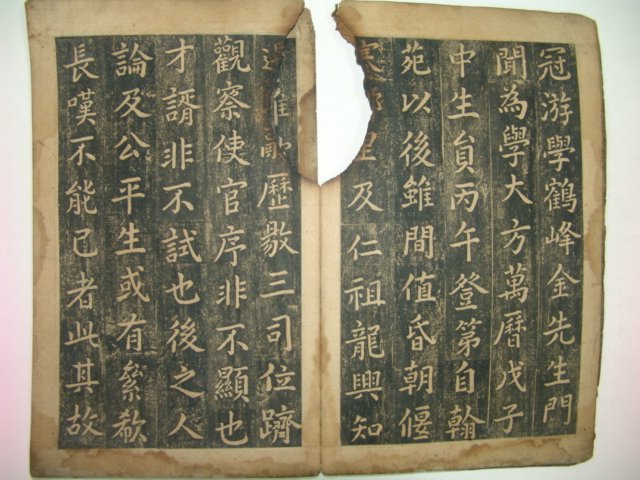 冠游學鶴峰金先生門
聞為學大方萬曆戊子
中生貟丙午登第自翰
苑以後雖間值昏朝偃
里及仁祖龍興知
雖歷敭三司位躋
觀察使官序非不顯也
才諝非不試也後之人
論及公平生或有纍欷
長嘆不能已者此其故